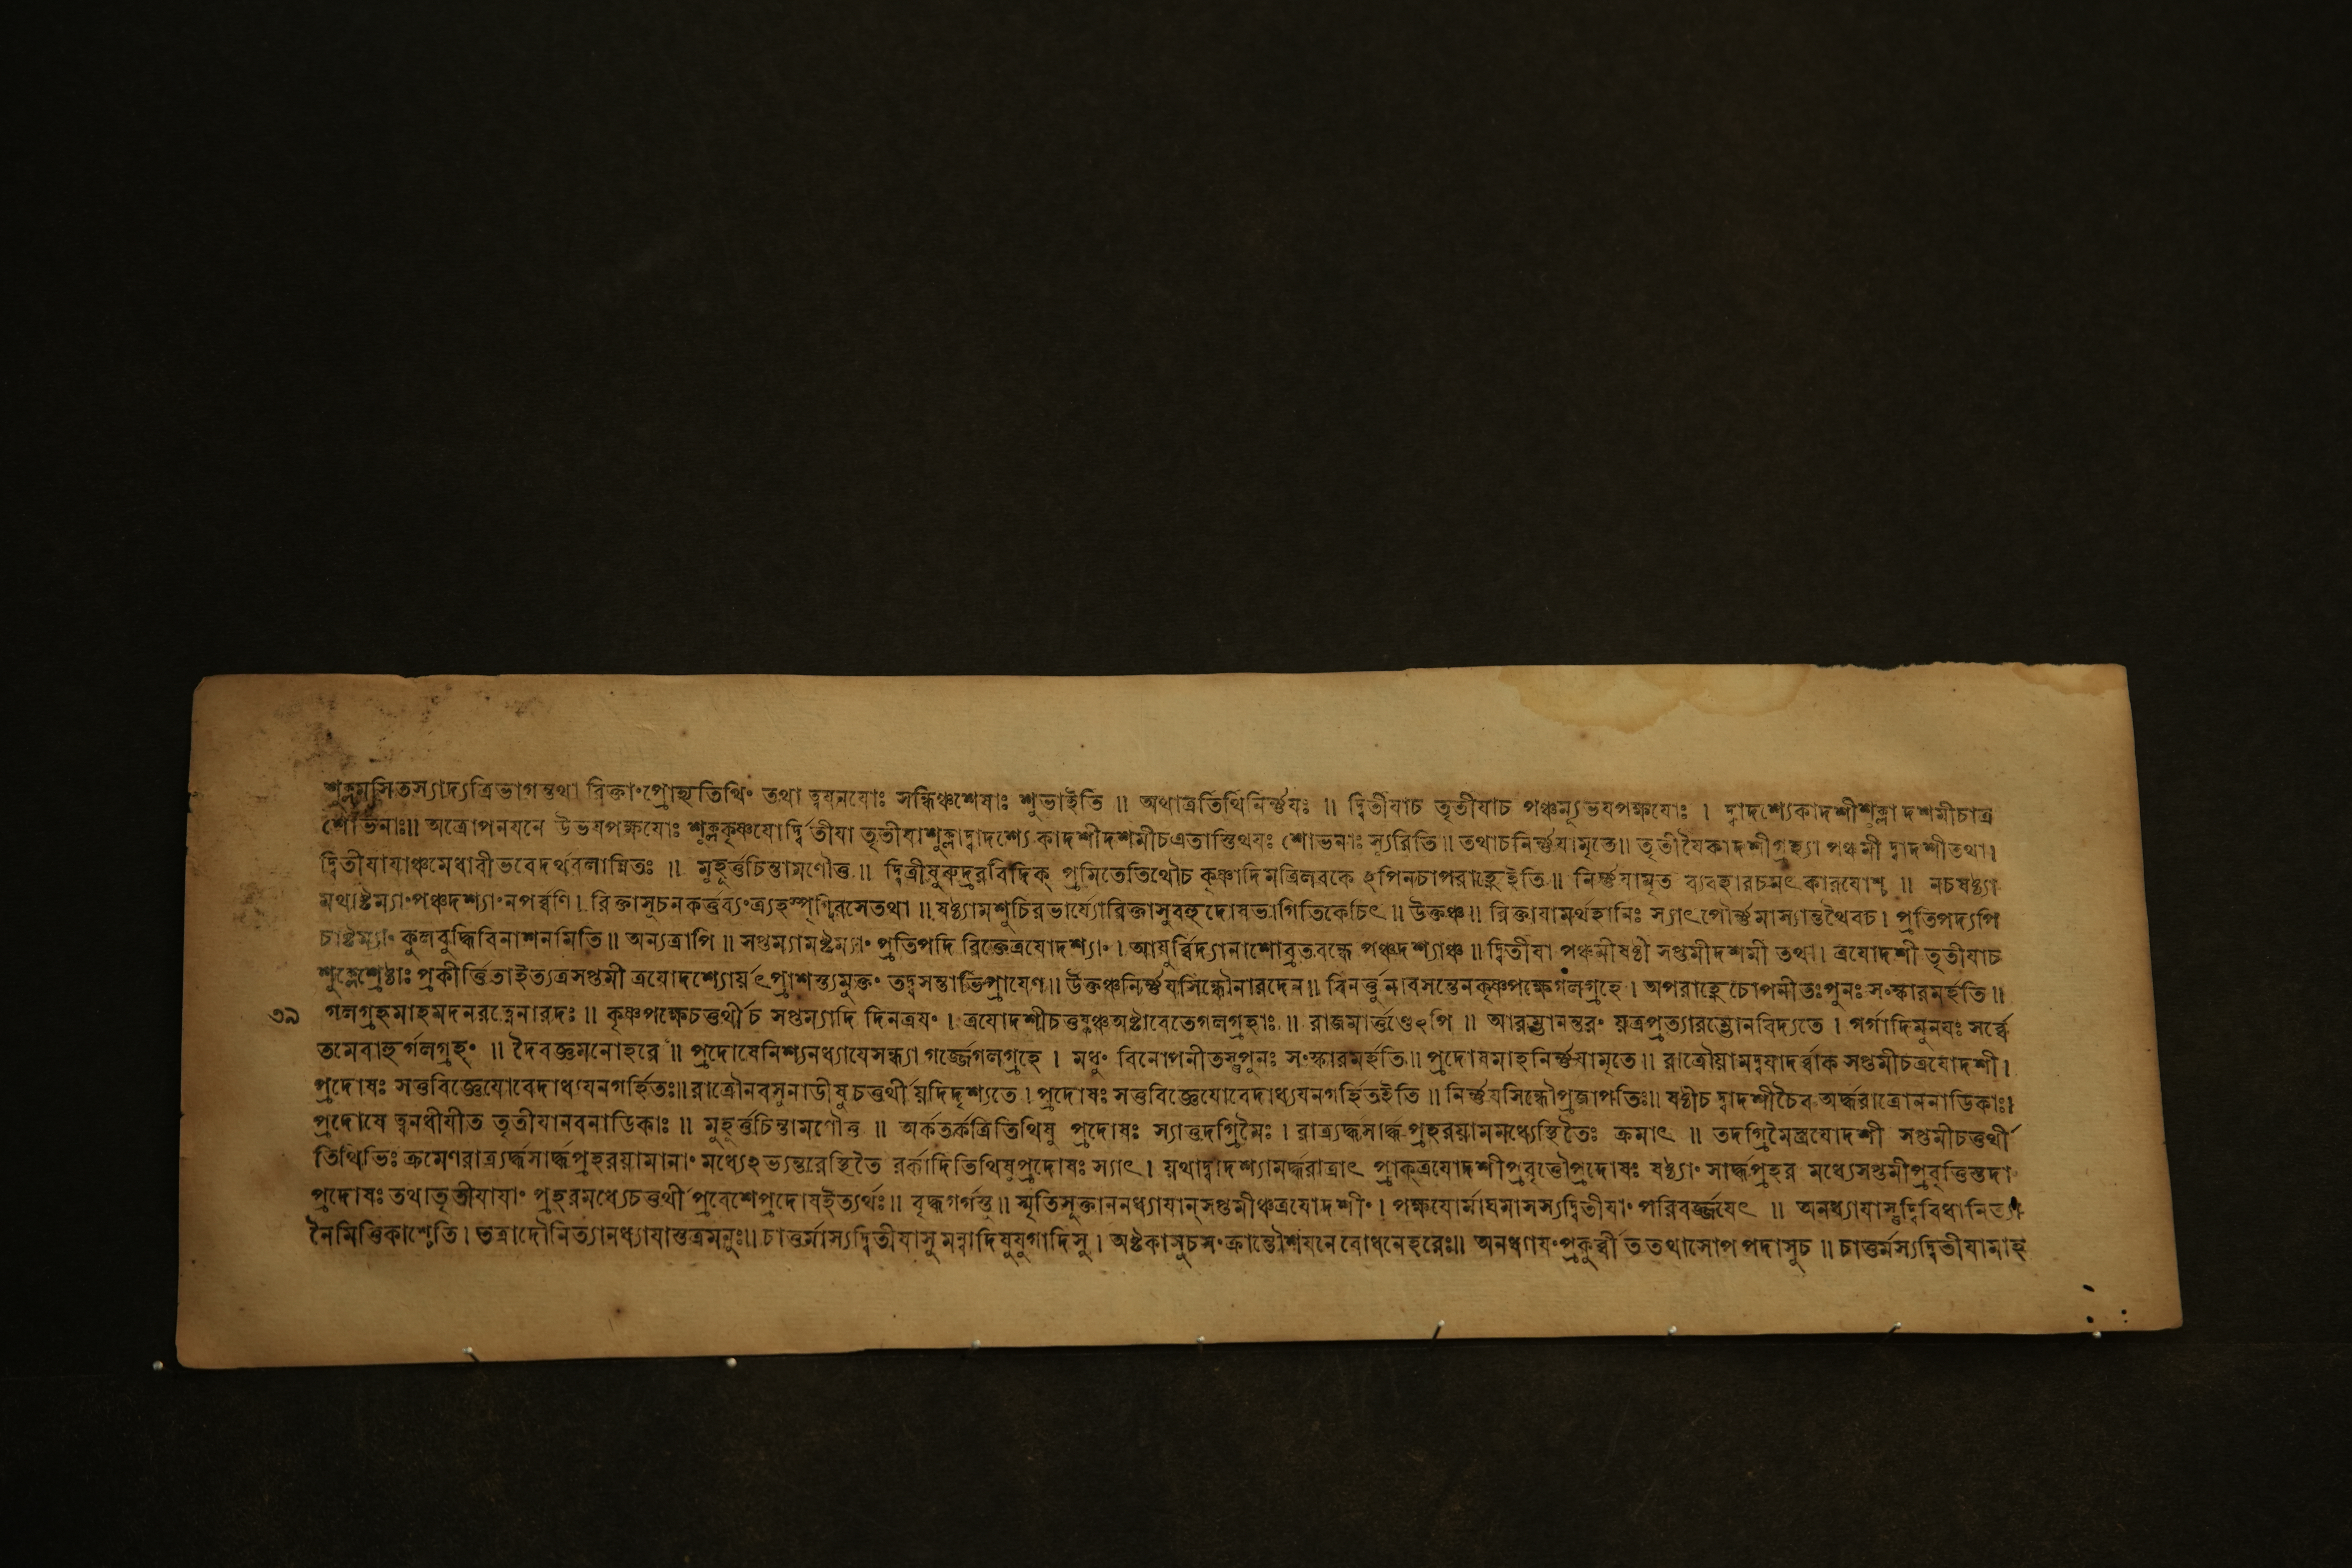 শুক্লমসিতস্যাদ্যত্রিভাগন্তথা রিক্তাংপ্রোহ্যতিথিং তথা ত্বযনযোঃ সন্ধিঞ্চশেষাঃ শুভাইতি ॥ অথাত্রতিথিনির্ণ্ণযঃ ॥ দ্বিতীযাচ তৃতীযাচ পঞ্চম্যূভযপক্ষযোঃ । দ্বাদশ্যেকাদশীশুক্লা দশমীচাত্র
শোভনাঃ॥ অত্রোপনযনে উভযপক্ষযোঃ শুক্লকৃষ্ণযোর্দ্দ্বিতীযা তৃতীযাশুক্লাদ্বাদশ্যে কাদশীদশমীচএতাস্তিথযঃ শোভনাঃ স্যুরিতি॥ তথাচনির্ণ্ণযামৃতে॥ তৃতীযৈকাদশীগ্রাহ্যা পঞ্চমী দ্বাদশীতথা।
দ্বিতীযাযাঞ্চমেধাবীভবেদর্থবলান্বিতঃ ॥ মুহূর্ত্তচিন্তামণৌতু ॥ দ্বিত্রীষুরুদ্ররবিদিক্ প্রমিতেতিথৌচ কৃষ্ণাদিমত্রিলবকে ঽপিনচাপরাহ্ণেইতি॥ নির্ণ্ণযামৃত ব্যবহারচমৎ কারযোশ্চ ॥ নচষষ্ঠ্যা
মথাষ্টম্যাংপঞ্চদশ্যাংনপর্ব্বণি। রিক্তাসুচনকর্ত্তব্যংত্র্যহস্পৃগ্দিবসেতথা ॥ ষষ্ঠ্যামশুচিরভার্য্যোরিক্তাসুবহুদোষভাগিতিকেচিৎ॥ উক্তঞ্চ॥ রিক্তাযামর্থহানিঃ স্যাৎপৌর্ণ্ণমাস্যান্তথৈবচ। প্রতিপদ্যপি
চাষ্টম্যাং কুলবুদ্ধিবিনাশনমিতি॥ অন্যত্রাপি ॥ সপ্তম্যামষ্টম্যাং প্রতিপদি রিক্তেত্রযোদশ্যাং । আযুর্ব্বিদ্যানাশোব্রতবন্ধে পঞ্চদশ্যাঞ্চ ॥ দ্বিতীযা পঞ্চমীষষ্ঠী সপ্তমীদশমী তথা। ত্রযোদশী তৃতীযাচ
শুক্লেশ্রেষ্ঠাঃ প্রকীর্ত্তিতাইত্যত্রসপ্তমী ত্রযোদশ্যোর্য়ৎপ্রাশস্ত্যমুক্তং তদ্বসন্তাভিপ্রাযেণ॥ উক্তঞ্চনির্ণ্ণযসিন্ধৌনারদেন॥ বিনর্ত্তুনাবসন্তেনকৃষ্ণপক্ষেগলগ্রহে। অপরাহ্ণে চোপনীতঃপুনঃ সংস্কারমর্হতি॥
৩৯ গলগ্রহমাহমদনরত্নেনারদঃ ॥ কৃষ্ণপক্ষেচতুর্থীচ সপ্তম্যাদি দিনত্রযং । ত্রযোদশীচতুষ্কঞ্চঅষ্টাবেতেগলগ্রহাঃ ॥ রাজমার্ত্তণ্ডেঽপি ॥ আরম্ভানন্তরং য়ত্রপ্রত্যারম্ভোনবিদ্যতে । গর্গাদিমুনযঃ সর্ব্বে
তমেবাহুর্গলগ্রহং ॥ দৈবজ্ঞমনোহরে ॥ প্রদোষেনিশ্যনধ্যাযেসন্ধ্যা গর্জ্জেগলগ্রহে । মধুং বিনোপনীতস্তুপুনঃ সংস্কারমর্হতি॥ প্রদোষমাহনির্ণ্ণযামৃতে॥ রাত্রৌয়ামদ্বযাদর্ব্বাক সপ্তমীচত্রযোদশী।
প্রদোষঃ সতুবিজ্ঞেযোবেদাধ্যযনগর্হিতঃ॥ রাত্রৌনবসুনাডীষু চতুর্থী য়দিদৃশ্যতে। প্রদোষঃ সতুবিজ্ঞেযোবেদাধ্যযনগর্হিতইতি ॥ নির্ণ্ণযসিন্ধৌপ্রজাপতিঃ॥ ষষ্ঠীচ দ্বাদশীচৈব অর্দ্ধরাত্রোননাডিকাঃ।
প্রদোষে ত্বনধীযীত তৃতীযানবনাডিকাঃ ॥ মুহূর্ত্তচিন্তামণৌতু ॥ অর্কতর্কত্রিতিথিষু প্রদোষঃ স্যাত্তদগ্রিমৈঃ । রাত্র্যর্দ্ধসার্দ্ধপ্রহরয়ামমধ্যেস্থিতৈঃ ক্রমাৎ ॥ তদগ্রিমৈস্ত্রযোদশী সপ্তমীচতুর্থী
তিথিভিঃ ক্রমেণরাত্র্যর্দ্ধসার্দ্ধপ্রহরয়ামানাং মধ্যেঽভ্যন্তরেস্থিতৈ রর্কাদিতিথিষুপ্রদোষঃ স্যাৎ। য়থাদ্বাদশ্যামর্দ্ধরাত্রাৎ প্রাক্ত্রযোদশীপ্রবৃত্তৌপ্রদোষঃ ষষ্ঠ্যাং সার্দ্ধপ্রহর মধ্যেসপ্তমীপ্রবৃত্তিস্তদা
প্রদোষঃ তথাতৃতীযাযাং প্রহরমধ্যেচতুর্থী প্রবেশেপ্রদোষইত্যর্থঃ॥ বৃদ্ধগর্গস্তু॥ স্মৃতিসুক্তাননধ্যাযান্সপ্তমীঞ্চত্রযোদশীং । পক্ষযোর্মাঘমাসস্যদ্বিতীযাং পরিবর্জ্জযেৎ ॥ অনধ্যাযাস্তুদ্বিবিধানিত্যা
নৈমিত্তিকাশ্চেতি। তত্রাদৌনিত্যানধ্যাযাস্তত্রমনুঃ॥ চাতুর্মাস্যদ্বিতীযাসু মন্বাদিষুযুগাদিসু। অষ্টকাসুচসংক্রান্তৌশযনে বোধনেহরেঃ॥ অনধ্যাযংপ্রকুর্ব্বীত তথাসোপপদাসুচ ॥ চাতুর্মস্যদ্বিতীযামাহ